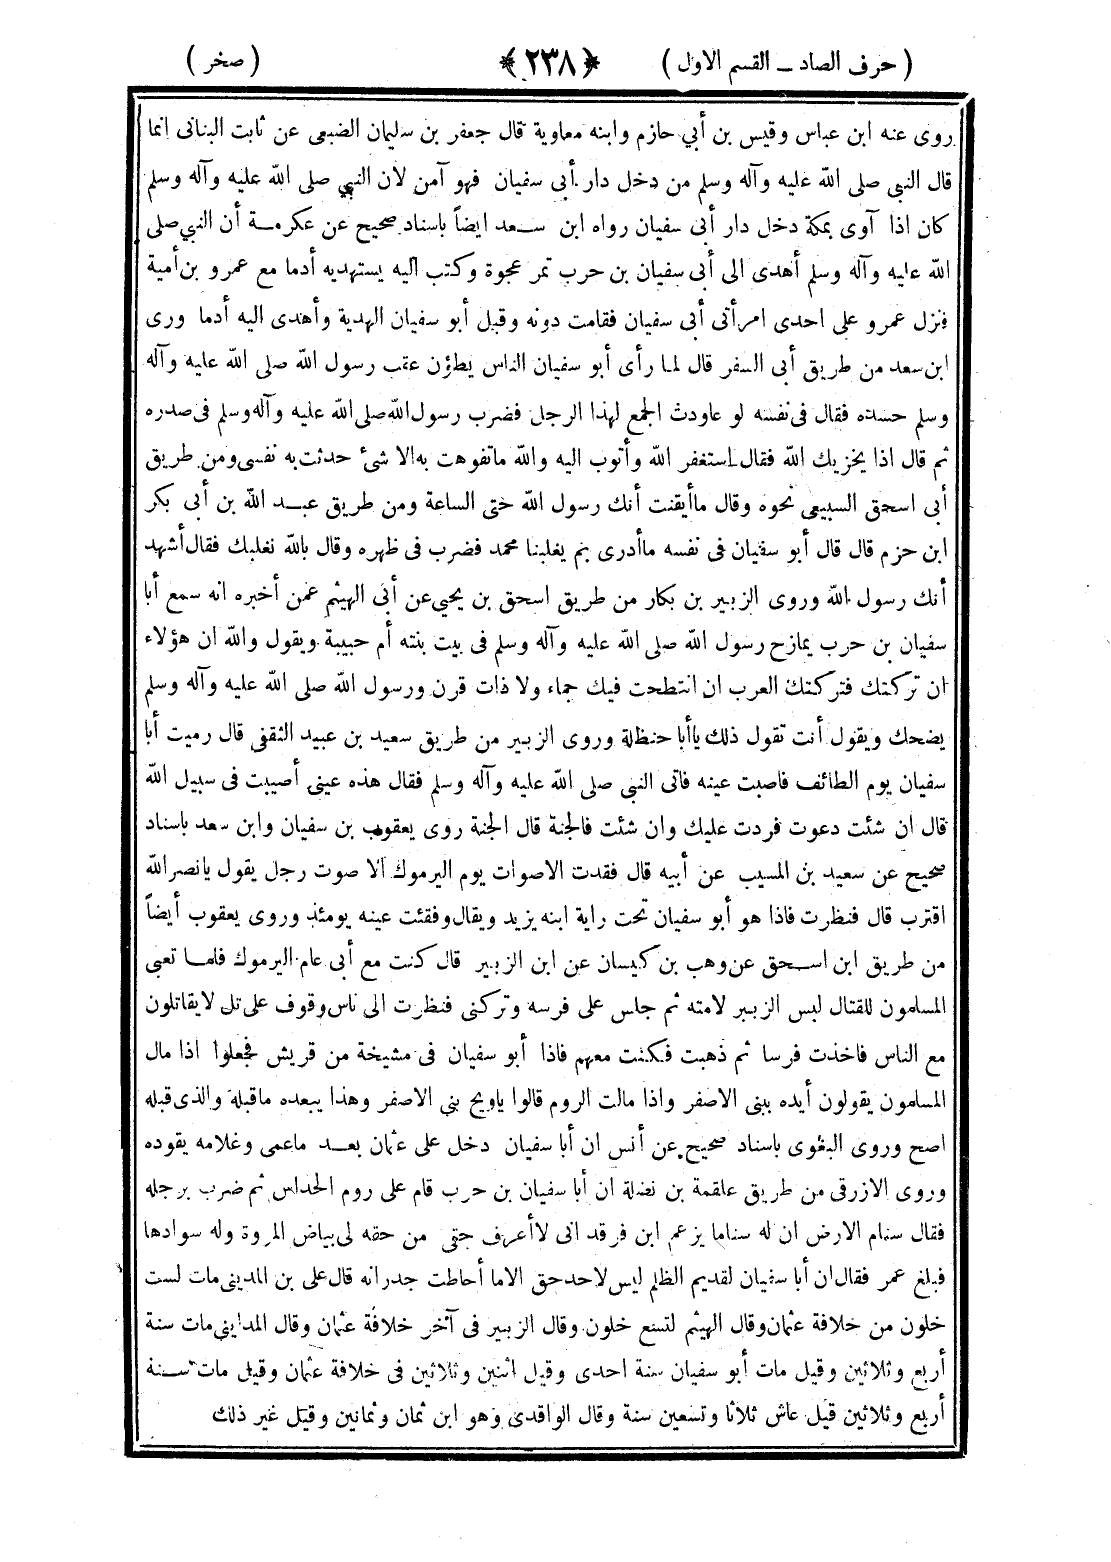 ( حرف الصاد ــ القسم الاول )
﴿ ٢٣٨ ﴾
( صخر )
روى عنه ابن عباس وقيس بن أبي حازم وابنه معاوية قال جعفر بن سليمان الضبعى عن ثابت البنانى انما
قال النبي صلى الله عليه وآله وسلم من دخل دار أبي سفيان فهو آمن لان النبي صلى الله عليه وآله وسلم
كان اذا آوى بمكة دخل دار أبى سفيان رواه ابن سعد ايضاً باسناد صحيح عن عكرمة أن النبي صلى
الله عليه وآله وسلم أهدى الى أبى سفيان بن حرب تمر عجوة وكتب اليه يستهديه أدما مع عمرو بن أمية
فنزل عمرو على احدى امرأتى أبى سفيان فقامت دونه وقبل أبو سفيان الهدية وأهدى اليه أدما ورى
ابن سعد من طريق أبى السفر قال لما رأى أبو سفيان الناس يطؤن عقب رسول الله صلى الله عليه وآله
وسلم حسده فقال فى نفسه لو عاودت الجمع لهذا الرجل فضرب رسول الله صلى الله عليه وآله وسلم فى صدره
ثم قال اذا يخزيك الله فقال استغفر الله وأتوب اليه والله ماتفوهت به الا شئ حدثت به نفسى ومن طريق
أبى اسحق السبيعى نحوه وقال ماأيقنت أنك رسول الله حتى الساعة ومن طريق عبد الله بن أبى بكر
ابن حزم قال قال أبو سفيان فى نفسه ماأدرى بم يغلبنا محمد فضرب فى ظهره وقال بالله نغلبك فقال أشهد
أنك رسول الله وروى الزبير بن بكار من طريق اسحق بن يحيي عن أبى الهيثم عمن أخبره انه سمع أبا
سفيان بن حرب يمازح رسول الله صلى الله عليه وآله وسلم فى بيت بنته أم حبيبة ويقول والله ان هؤلاء
ان تركتك فتركتك العرب ان انتطحت فيك جماء ولا ذات قرن ورسول الله صلى الله عليه وآله وسلم
يضحك ويقول أنت تقول ذلك ياأبا حنظلة وروى الزبير من طريق سعيد بن عبيد الثقفى قال رميت أبا
سفيان يوم الطائف فاصبت عينه فاتى النبى صلى الله عليه وآله وسلم فقال هذه عينى أصيبت فى سبيل الله
قال ان شئت دعوت فردت عليك وان شئت فالجنة قال الجنة روى يعقوب بن سفيان وابن سعد باسناد
صحيح عن سعيد بن المسيب عن أبيه قال فقدت الاصوات يوم اليرموك الا صوت رجل يقول يانصر الله
اقترب قال فنظرت فاذا هو أبو سفيان تحت راية ابنه يزيد ويقال وفقئت عينه يومئذ وروى يعقوب أيضاً
من طريق ابن اسحق عن وهب بن كيسان عن ابن الزبير قال كنت مع أبى عام اليرموك فلما تعبى
المسلمون للقتال لبس الزبير لامته ثم جلس على فرسه وتركنى فنظرت الى ناس وقوف على تل لايقاتلون
مع الناس فاخذت فرسا ثم ذهبت فكنت معهم فاذا أبو سفيان فى مشيخة من قريش فجعلوا اذا مال
المسلمون يقولون أيده ببنى الاصفر واذا مالت الروم قالوا ياويح بني الاصفر وهذا يبعده ماقبله والذى قبله
اصح وروى البغوى باسناد صحيح عن أنس ان أبا سفيان دخل على عثمان بعد ماعمى وغلامه يقوده
وروى الازرقى من طريق علقمة بن نضلة ان أبا سفيان بن حرب قام على روم الحداس ثم ضرب برجله
فقال سنام الارض ان له سناما يزعم ابن فرقد انى لاأعرف حتى من حقه لى بياض المروة وله سوادها
فبلغ عمر فقال ان أبا سفيان لقديم الظلم ليس لاحد حق الاما أحاطت جدرانه قال على بن المدينى مات لست
خلون من خلافة عثمان وقال الهيثم لتسع خلون وقال الزبير فى آخر خلافة عثمان وقال المداينى مات سنة
أربع وثلاثين وقيل مات أبو سفيان سنة احدى وقيل اثنين وثلاثين فى خلافة عثمان وقيل مات سنة
أربع وثلاثين قيل عاش ثلاثا وتسعين سنة وقال الواقدى وهو ابن ثمان وثمانين وقيل غير ذلك